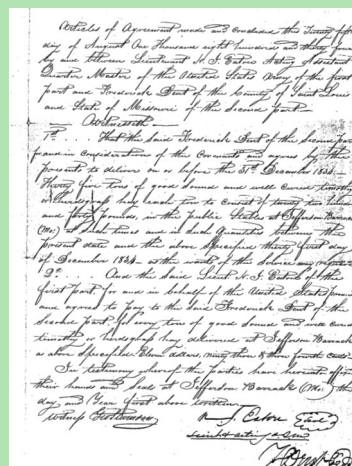 Articles of Agreement made and concluded this Twenty fifth
day of August One Thousand eight hundred and thirty four
by and between Lieutenant N. J. Eaton Acting Assistant
Quarter Master of the United States Army of the first
part and Frederick Dent of the County of Saint Louis
and State of Missouri of the Second part
Witnesseth
1st That the Said Frederick Dent of the Second part
for and in consideration of the Covenants and agrees by these
presents to deliver on or before the 31st December 1834
Thirty five tons of good Sound and well cured timothy
or herdsgrass hay (each ton to consist of twenty two hundred
and forty pounds, in the public Stables at Jefferson Barracks
(Mo) at Such times and in Such quantities between the
present date and the above Specified thirty first day
of December 1834 as the wants of the Service may require
2d And the Said Lieut N. J. Eaton of the
first part for and in behalf of the United States
and agrees to pay to the Said Frederick Dent of the
Second part for every ton of good Sound and well cured
timothy or herdsgrass hay delivered at Jefferson Barracks
as above Specified Eleven dollars, ninety three & three fourth cents
In testimony whereof the parties have hereunto affixed
their hands and Seal at Jefferson Barracks (Mo) the
day and Year first above written
Witness
N. J. Eaton Seal
F Dent